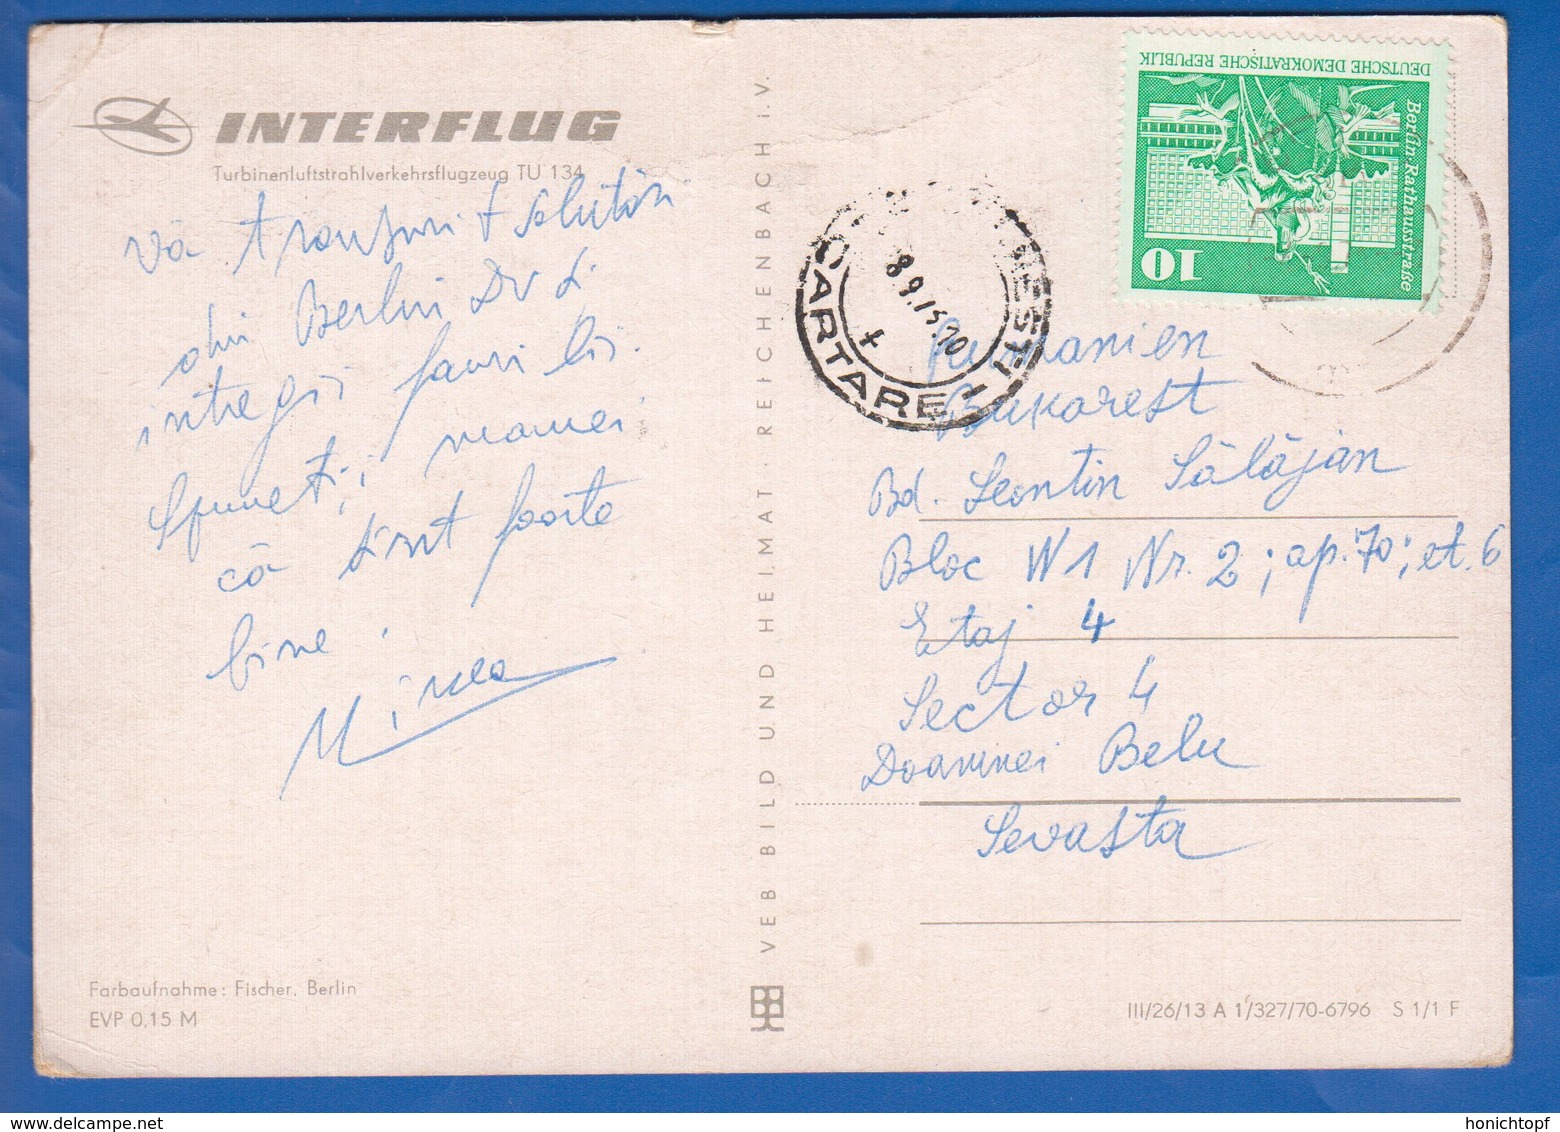 INTERFLUG
Turbinenluftstrahlverkehrsflugzeug TU 134
Vă transmit salutări
din Berlin Dv și
întregii familii.
Spuneți-i mamei
că sînt foarte
bine.
Mircea
Farbaufnahme: Fischer, Berlin
EVP 0,15 M
VEB BILD UND HEIMAT · REICHENBACH i. V.
DEUTSCHE DEMOKRATISCHE REPUBLIK
Berlin·Rathausstraße
10
CARTARE
8.9.75.10
Rumanien
Bukarest
Bd. Leontin Sălăjan
Bloc W1 Nr. 2; ap. 70; et. 6
Etaj 4
Sector 4
Doamnei Belu
Sevasta
III/26/13 A 1/327/70-6796 S 1/1 F
honichtopf